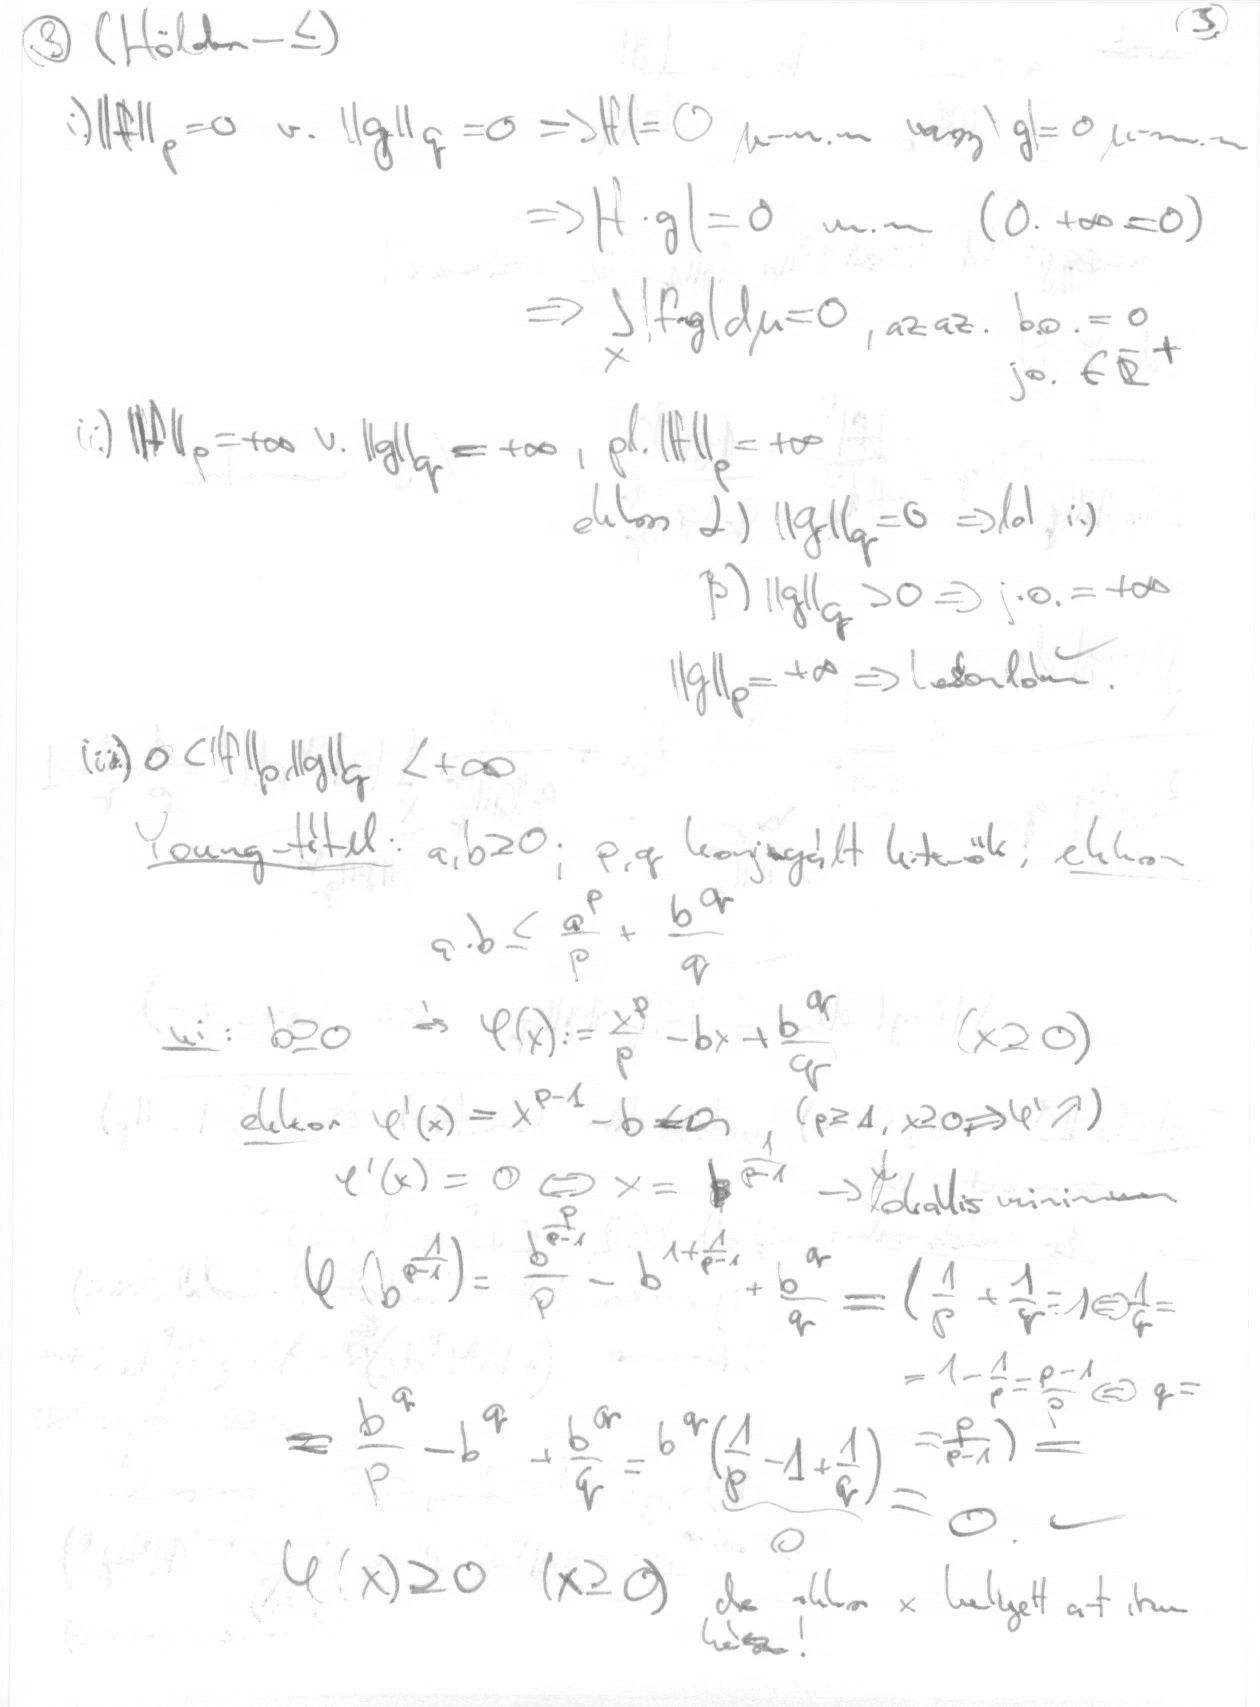 ③ (Hölder-≤) ③
i) ||f||_p = 0 v. ||g||_q = 0 ⇒ |f| = 0 μ-m.m vagy |g| = 0 μ-m.m
⇒ |f·g| = 0 m.m (0·+∞=0)
⇒ ∫_X |f·g| dμ = 0, azaz. b.o. = 0
j.o. ∈ ℝ̄⁺
ii) ||f||_p = +∞ v. ||g||_q = +∞, pl. ||f||_p = +∞
ekkor α) ||g||_q = 0 ⇒ ld i.)
β) ||g||_q > 0 ⇒ j.o. = +∞
||g||_p = +∞ ⇒ hasonlóan ✓.
iii) 0 < ||f||_p, ||g||_q < +∞
Young-tétel: a,b≥0; p,q konjugált kitevők, ekkor
a·b ≤ a^p/p + b^q/q
ui: b≥0 és φ(x) := x^p/p - bx + b^q/q (x≥0)
ekkor φ'(x) = x^{p-1} - b, (p≥1, x≥0 ⇒ φ' ↗)
φ'(x) = 0 ⇔ x = b^{1/(p-1)} → lokális minimum
φ(b^{1/(p-1)}) = b^{p/(p-1)}/p - b^{1+1/(p-1)} + b^q/q = (1/p + 1/q = 1 ⇔ 1/q =
= 1 - 1/p = (p-1)/p ⇔ q =
= b^q/p - b^q + b^q/q = b^q (1/p - 1 + 1/q) = p/(p-1)) =
0 = 0. ✓
φ(x) ≥ 0 (x≥0) de ekkor x helyett a-t írva
kész!